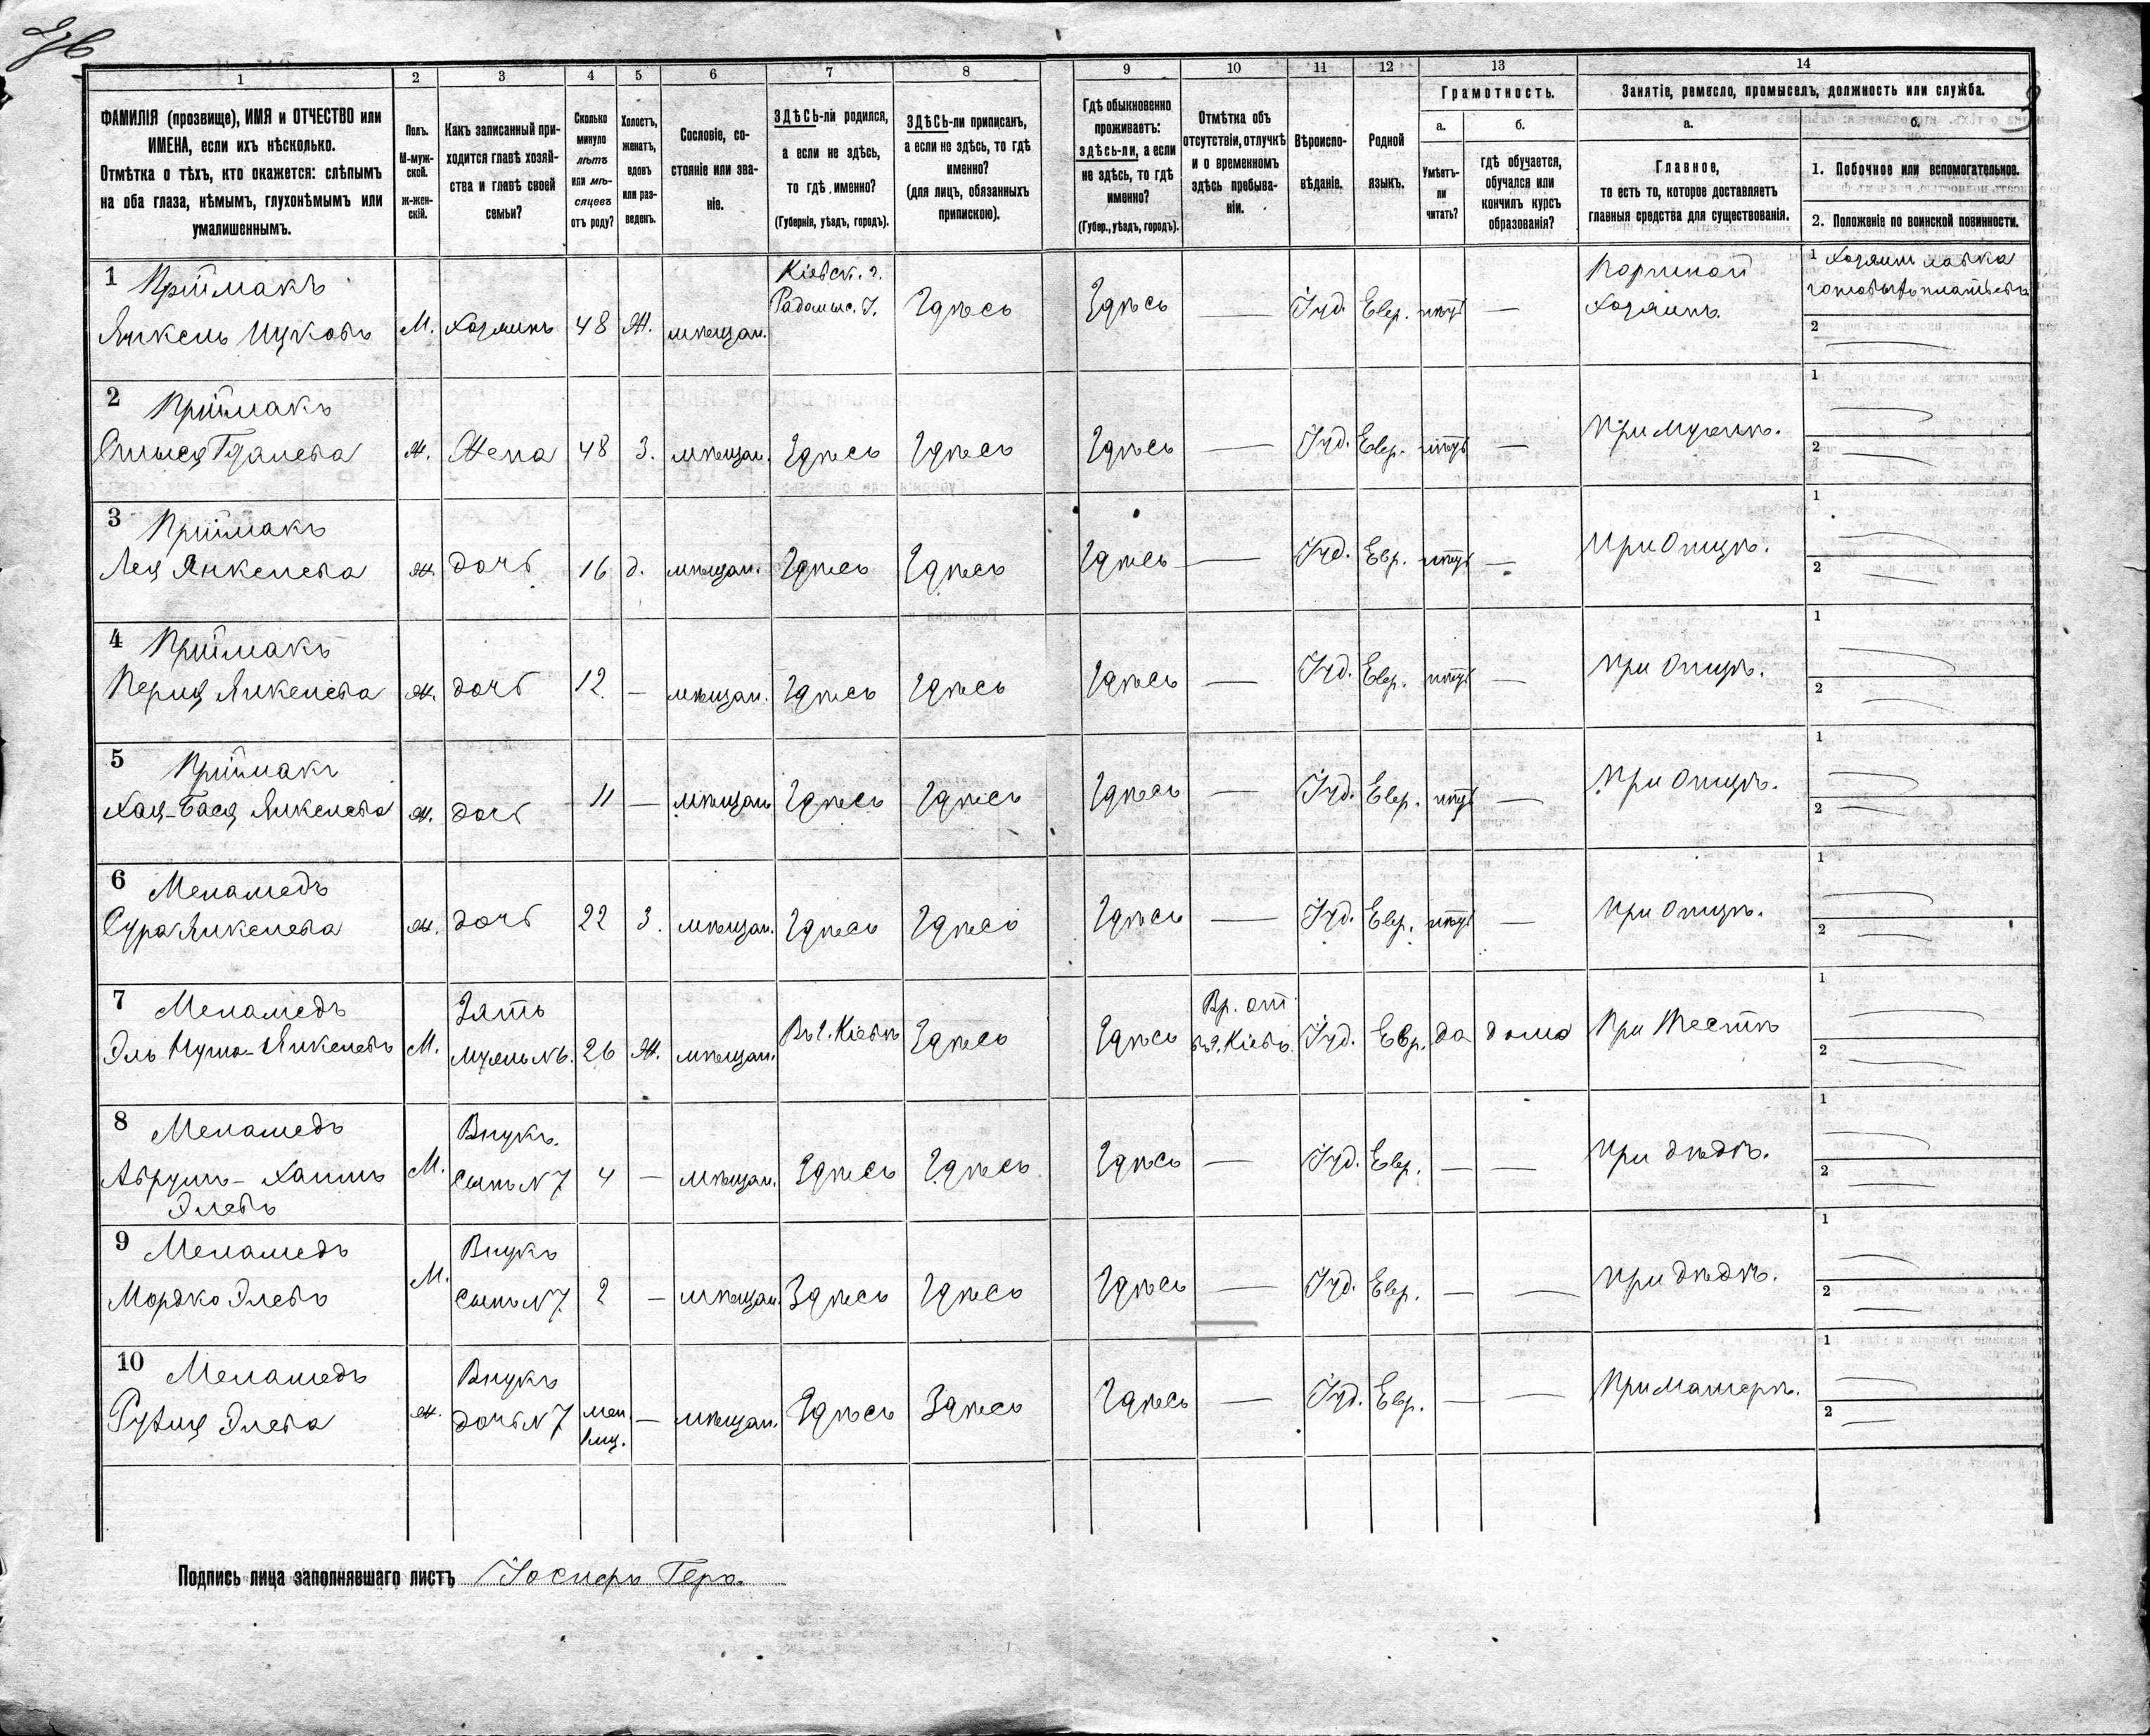 1 2 3 4 5 6 7 8 9 10 11 12 13 14
ФАМИЛІЯ (прозвище), ИМЯ и ОТЧЕСТВО или
ИМЕНА, если ихъ нѣсколько.
Отмѣтка о тѣхъ, кто окажется: слѣпымъ
на оба глаза, нѣмымъ, глухонѣмымъ или
умалишеннымъ.
Полъ.
М-муж-
ской.
Ж-жен-
скій.
Какъ записанный при-
ходится главѣ хозяй-
ства и главѣ своей
семьи?
Сколько
минуло
лѣтъ
или мѣ-
сяцевъ
отъ роду?
Холостъ,
женатъ,
вдовъ
или раз-
веденъ.
Сословіе, со-
стояніе или зва-
ніе.
ЗДѢСЬ-ли родился,
а если не здѣсь,
то гдѣ именно?
(Губернія, уѣздъ, городъ).
ЗДѢСЬ-ли приписанъ,
а если не здѣсь, то гдѣ
именно?
(для лицъ, обязанныхъ
припискою).
Гдѣ обыкновенно
проживаетъ:
здѣсь-ли, а если
не здѣсь, то гдѣ
именно?
(Губер., уѣздъ, городъ).
Отмѣтка объ
отсутствіи, отлучкѣ
и о временномъ
здѣсь пребыва-
ніи.
Вѣроиспо-
вѣданіе.
Родной
языкъ.
Грамотность.
а.
Умѣетъ-
ли
читать?
б.
гдѣ обучается,
обучался или
кончилъ курсъ
образованія?
Занятіе, ремесло, промыселъ, должность или служба.
а.
Главное,
то есть то, которое доставляетъ
главныя средства для существованія.
б.
1. Побочное или вспомогательное.
2. Положеніе по воинской повинности.
1 Пріймакъ
Янкель Ицковъ М. Хозяинъ 48 Ж. мѣщан. Кіевск. г.
Радомыс. У. Здѣсь Здѣсь — Іуд. Евр. нѣтъ — Портной
Хозяинъ. 1 Хозяин лавка
готовыхъ платьевъ
2 —
2 Пріймакъ
Гдалева ж. Жена 48 З. мѣщан. Здѣсь Здѣсь Здѣсь — Іуд. Евр. нѣтъ — При мужѣ. 1 —
2 —
3 Пріймакъ
Лея Янкелева ж. дочь 16 д. мѣщан. Здѣсь Здѣсь Здѣсь — Іуд. Евр. нѣтъ — При Отцѣ. 1 —
2 —
4 Пріймакъ
Перля Янкелева ж. дочь 12 — мѣщан. Здѣсь Здѣсь Здѣсь — Іуд. Евр. нѣтъ — При Отцѣ. 1 —
2 —
5 Пріймакъ
Хая-Бася Янкелева ж. дочь 11 — мѣщан Здѣсь Здѣсь Здѣсь — Іуд. Евр. нѣтъ — При Отцѣ. 1 —
2 —
6 Меламедъ
Сура Янкелева ж. дочь 22 З. мѣщан. Здѣсь Здѣсь Здѣсь — Іуд. Евр. нѣтъ — При Отцѣ. 1 —
2 —
7 Меламедъ
Эль Янкелевъ М. Зять
мужъ №6. 26 Ж. мѣщан. Въ г. Кіевѣ Здѣсь Здѣсь Вр. от
въ г. Кіевъ. Іуд. Евр. да дома При Тестѣ 1 —
2 —
8 Меламедъ
Аврумъ-Хаимъ
Элевъ М. Внукъ.
Сынъ №7 4 — мѣщан. Здѣсь Здѣсь Здѣсь — Іуд. Евр. — — При дѣдѣ. 1 —
2 —
9 Меламедъ
Мордко Элевъ М. Внукъ
Сынъ №7. 2 — мѣщан. Здѣсь Здѣсь Здѣсь — Іуд. Евр. — — При дѣдѣ. 1 —
2 —
10 Меламедъ
Элева ж. Внукъ
дочь №7 мен.
1 мц. — мѣщан. Здѣсь Здѣсь Здѣсь — Іуд. Евр. — — При матерѣ. 1 —
2 —
Подпись лица заполнявшаго листъ Іосифъ Геръ.